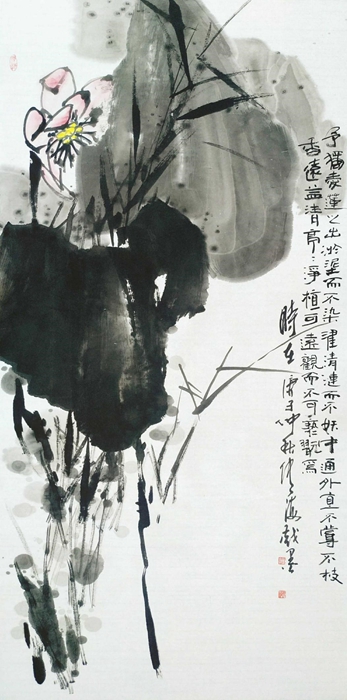 予獨愛蓮之出淤泥而不染濯清漣而不妖中通外直不蔓不枝
香遠益清亭〻淨植可遠觀而不可褻翫焉
時在
仲秋
戲墨